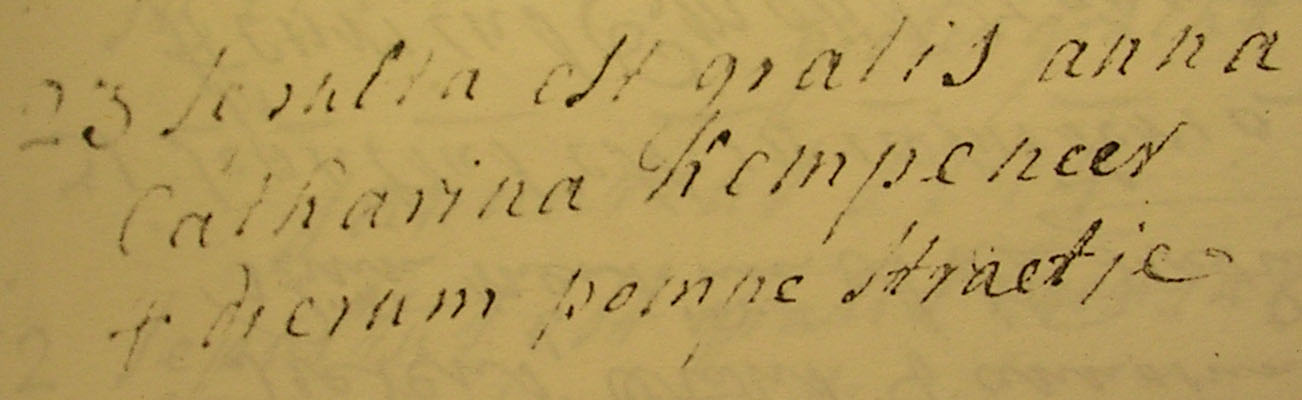 23 sepulta est gratis anna
Catharina Kempeneer
4 dierum pompe straetje